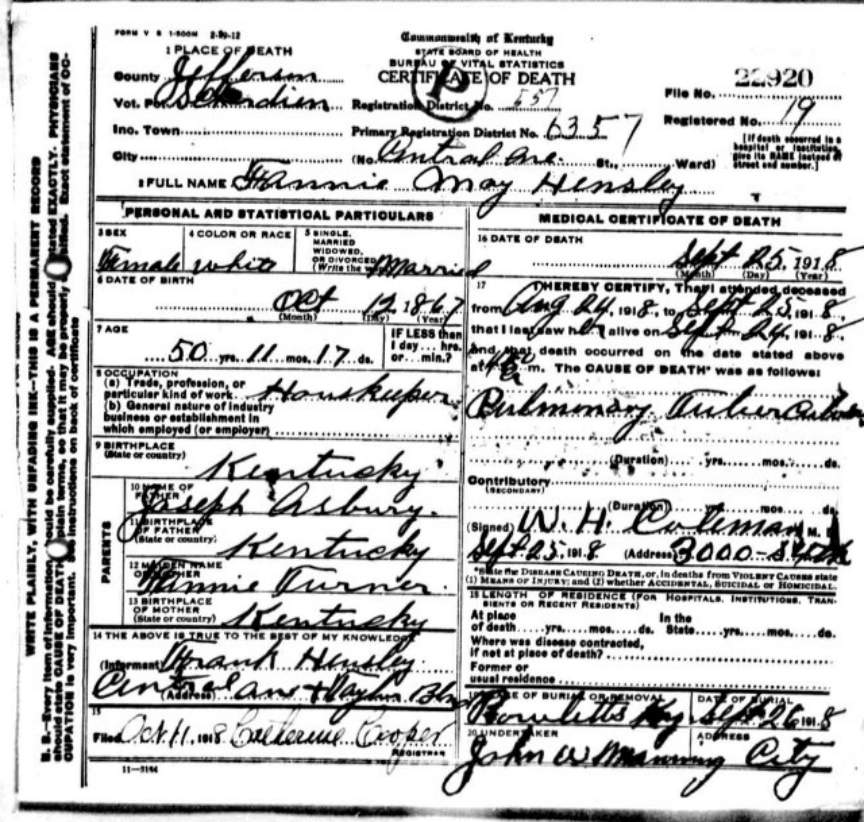 FORM V S 1-500M 2-29-12
Commonwealth of Kentucky
STATE BOARD OF HEALTH
BUREAU OF VITAL STATISTICS
CERTIFICATE OF DEATH
P
1 PLACE OF DEATH
County Jefferson
Vot. Pct.
Inc. Town
City
Registration District No. 557
Primary Registration District No. 6357
(No. Central Ave. St., Ward)
File No. 22920
Registered No. 19
[If death occurred in a hospital or institution, give its NAME instead of street and number.]
2 FULL NAME Fannie May Hensley
PERSONAL AND STATISTICAL PARTICULARS
3 SEX
Female
4 COLOR OR RACE
white
5 SINGLE, MARRIED WIDOWED, OR DIVORCED
(Write the w Married
6 DATE OF BIRTH
Oct 12 1867
(Month) (Day) (Year)
7 AGE
50 yrs. 11 mos. 17 ds.
IF LESS than
1 day... hrs.
or... min.?
8 OCCUPATION
(a) Trade, profession, or
particular kind of work Houskeeper
(b) General nature of industry
business or establishment in
which employed (or employer)
9 BIRTHPLACE
(State or country)
Kentucky
PARENTS
10 NAME OF FATHER
Joseph Asbury.
11 BIRTHPLACE OF FATHER
(State or country)
Kentucky
12 MAIDEN NAME OF MOTHER
Turner
13 BIRTHPLACE OF MOTHER
(State or country)
Kentucky
14 THE ABOVE IS TRUE TO THE BEST OF MY KNOWLEDGE
(Informant Frank Hensley
(Address) Central Ave + Taylor Blvd
15
Filed Oct 11, 1918 Catherine Cooper
REGISTRAR
11-3184
MEDICAL CERTIFICATE OF DEATH
16 DATE OF DEATH
Sept 25 1918
(Month) (Day) (Year)
17 I HEREBY CERTIFY, That I attended deceased
from Aug 24, 1918, to Sept 25, 1918,
that I last saw her alive on Sept 24, 1918,
and that death occurred on the date stated above
at m. The CAUSE OF DEATH* was as follows:
Pulmonary Tuberculosis
(Duration) yrs. mos. ds.
Contributory
(SECONDARY)
(Duration) mos ds.
(Signed) W. H. Coleman M.
Sept. 25, 1918 (Address) 3000
*State the DISEASE CAUSING DEATH, or, in deaths from VIOLENT CAUSES state
(1) MEANS OF INJURY; and (2) whether ACCIDENTAL, SUICIDAL or HOMICIDAL.
18 LENGTH OF RESIDENCE (FOR HOSPITALS, INSTITUTIONS, TRAN-
SIENTS OR RECENT RESIDENTS)
At place of death yrs. mos. ds. In the State yrs. mos. ds.
Where was disease contracted,
if not at place of death?
Former or
usual residence
19 PLACE OF BURIAL OR REMOVAL
Rowletts Ky
DATE OF BURIAL
Sept 26 1918
20 UNDERTAKER
John W Manning
ADDRESS
City
WRITE PLAINLY, WITH UNFADING INK—THIS IS A PERMANENT RECORD
N. B.—Every item of information should be carefully supplied. AGE should be stated EXACTLY. PHYSICIANS
should state CAUSE OF DEATH in plain terms, so that it may be properly classified. Exact statement of OC-
CUPATION is very important. See instructions on back of certificate